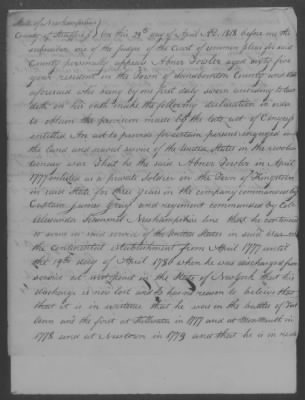 State of Newhampshire
County of Strafford) On this 28th day of April A.D. 1818 before me the
subscriber one of the judges of the Court of common pleas for said
County personally appeared Abner Fowler aged sixty five
years resident in the Town of Sanbornton County and state
aforesaid who being by me first duly sworn according to law
doth on his oath make the following declaration in order
to obtain the provision made by the late act of Congress
entitled An act to provide for certain persons engaged in
the land and naval service of the United States in the revolu
tionary war That he the said Abner Fowler in April
1777 enlisted as a private Soldier in the Town of Kingstown
in said State for three years in the company commanded by
Captain James Gray and regiment commanded by Col.
Alexander Scammel Newhampshire line that he continued
to serve in said service of the United States in said war on
the continental establishment from April 1777 until
the day of April 1780 when he was discharged from
service at west point in the State of Newyork that his
discharge is now lost and he has no reason to believe that
that it is in existence that he was in the battles of
and the first at Stillwater in 1777 and at Monmouth in
1778 and at Newtown in 1779 and that he is in